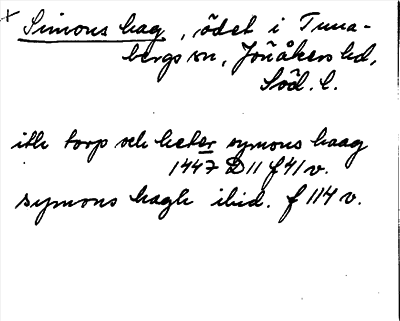 x Simons hag, ödet i Tuna-
bergs sn, Jönåkers hd,
Söd. l.
ith torp och heter symons haag
1447 D11 f 41 v.
symons hagh ibid. f 114 v.